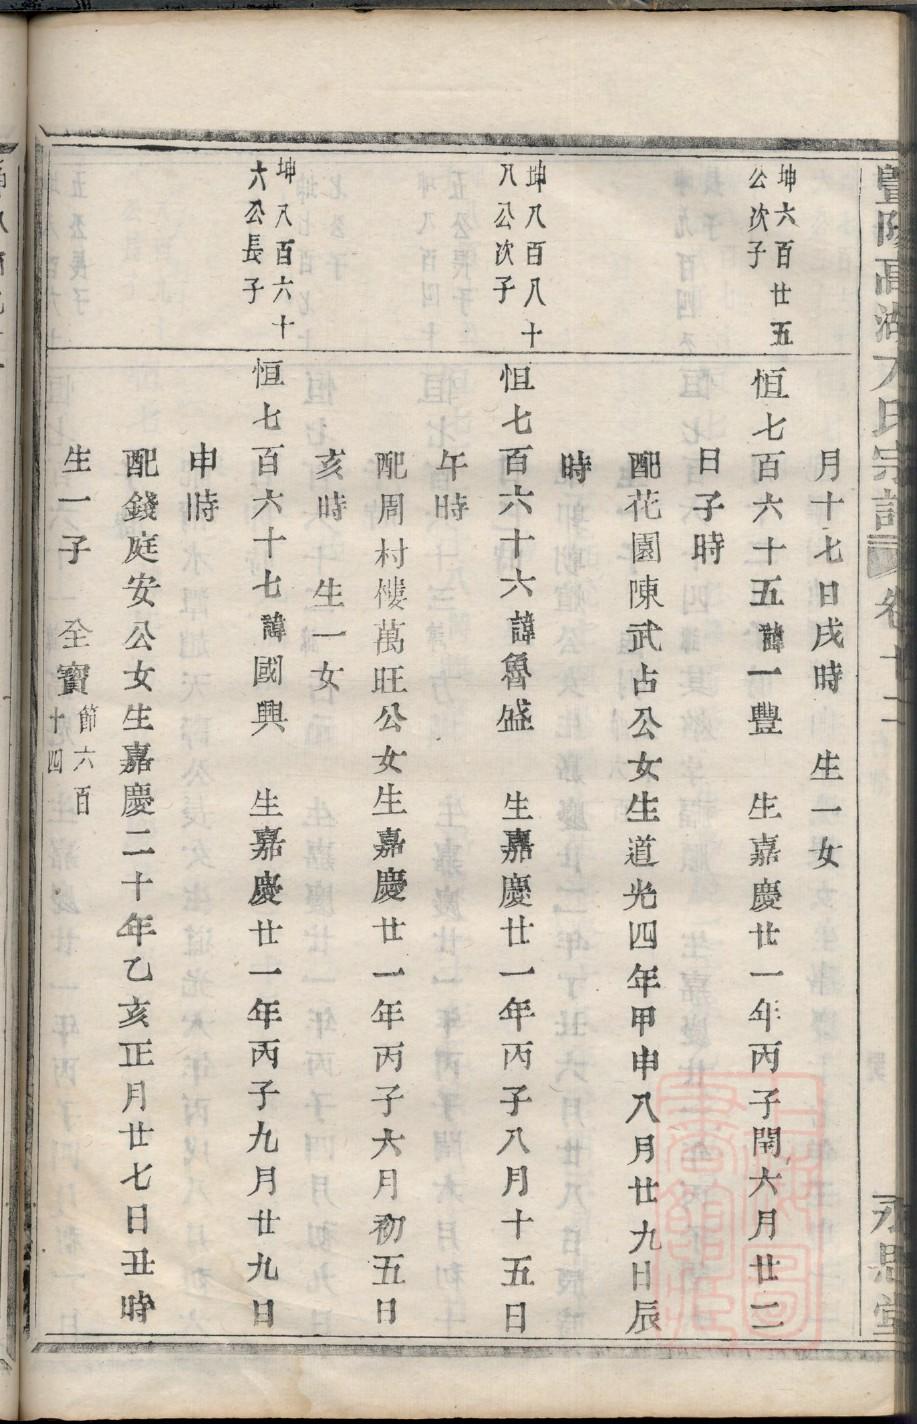 暨陽高湖方氏宗譜 卷十二 永思堂
月十七日戌時 生一女
坤六百廿五公次子
恒七百六十五諱一豐 生嘉慶廿一年丙子閏六月廿二
日子時
配花園陳武占公女生道光四年甲申八月廿九日辰
時
坤八百八十八公次子
恒七百六十六諱魯盛 生嘉慶廿一年丙子八月十五日
午時
配周村樓萬旺公女生嘉慶廿一年丙子六月初五日
亥時 生一女
坤八百六十六公長子
恒七百六十七諱國興 生嘉慶廿一年丙子九月廿九日
申時
配錢庭安公女生嘉慶二十年乙亥正月廿七日丑時
生一子 全寶節六百十四